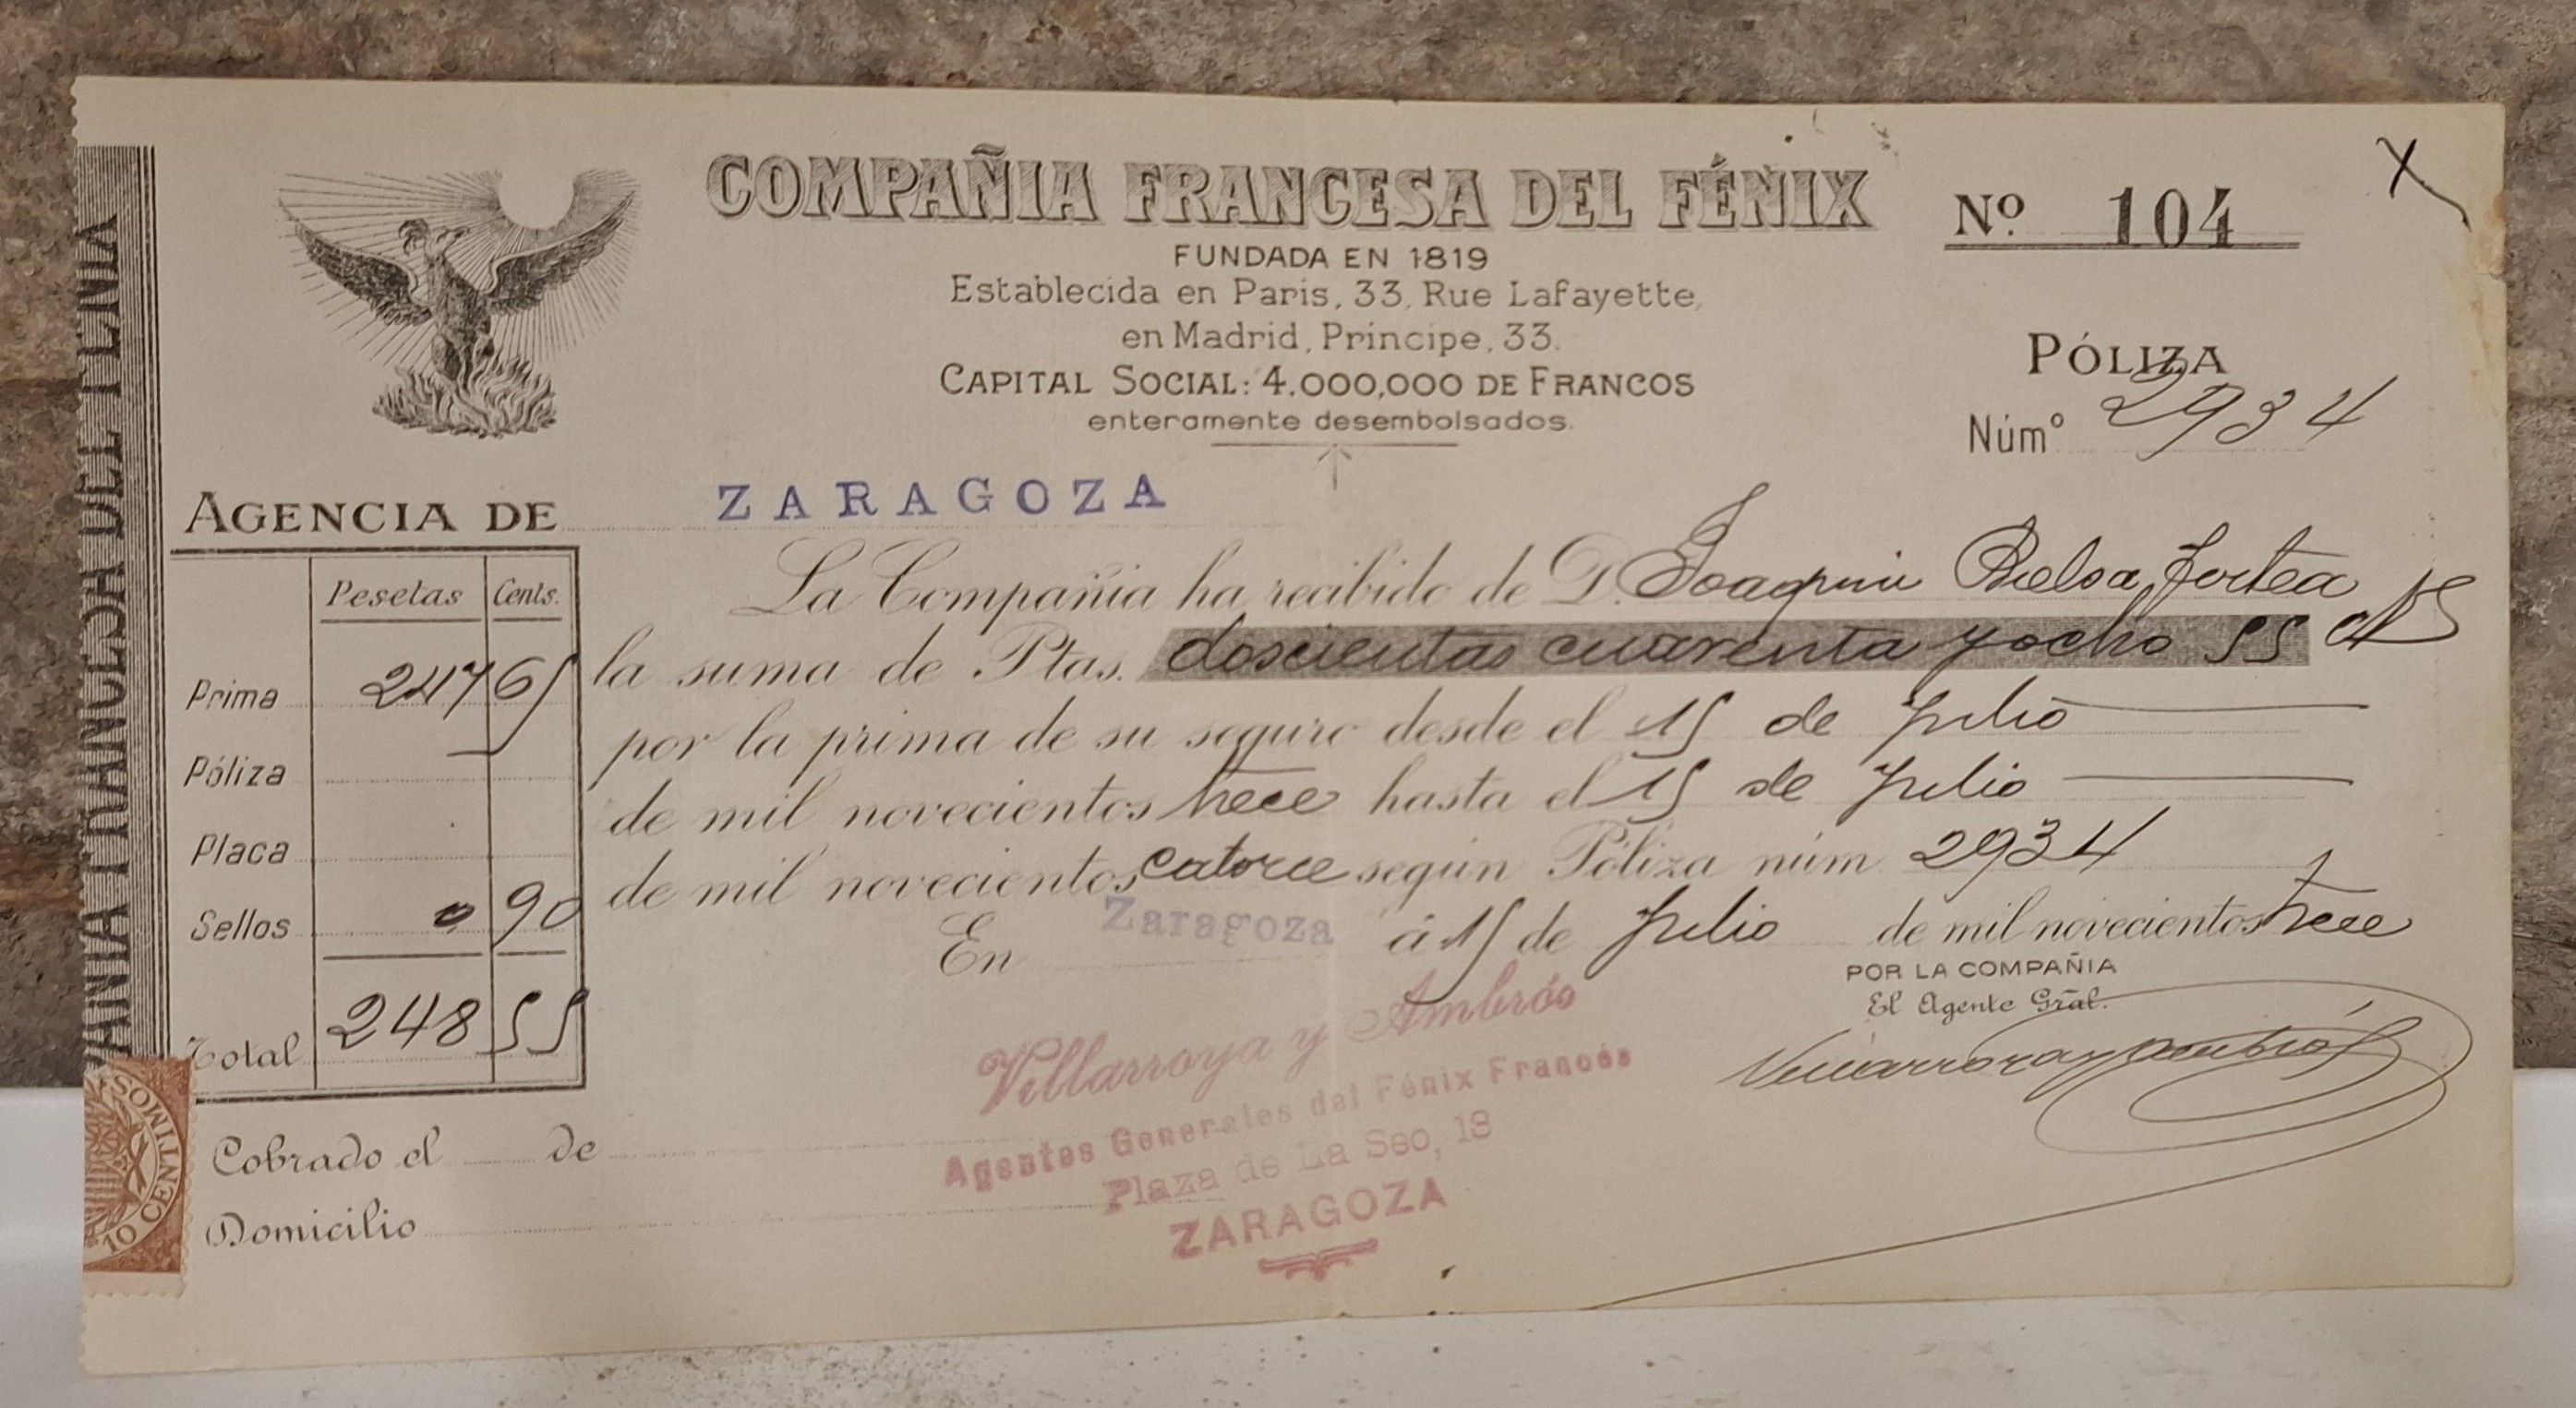 COMPAÑIA FRANCESA DEL FÉNIX
FUNDADA EN 1819
Establecida en Paris, 33, Rue Lafayette,
en Madrid, Príncipe, 33.
CAPITAL SOCIAL: 4.000,000 DE FRANCOS
enteramente desembolsados.
Nº 104
X
PÓLIZA
Númº 2934
PAÑIA FRANCESA DEL FENIX
AGENCIA DE ZARAGOZA
Pesetas Cents.
Prima 247 65
Póliza
Placa
Sellos 0 90
Total 248 55
La Compañia ha recibido de D. Joaquin Bielsa Fortea
la suma de Ptas. doscientas cuarenta y ocho 55
por la prima de su seguro desde el 15 de Julio
de mil novecientos trece hasta el 15 de Julio
de mil novecientos catorce según Póliza núm 2934
En Zaragoza á 15 de Julio de mil novecientos trece
POR LA COMPAÑIA
El Agente Gral.
Villarroya y Ambrós
Villarroya y Ambrós
Agentes Generales del Fénix Francés
Plaza de La Seo, 18
ZARAGOZA
Cobrado el de
Domicilio
10 CENTIMOS